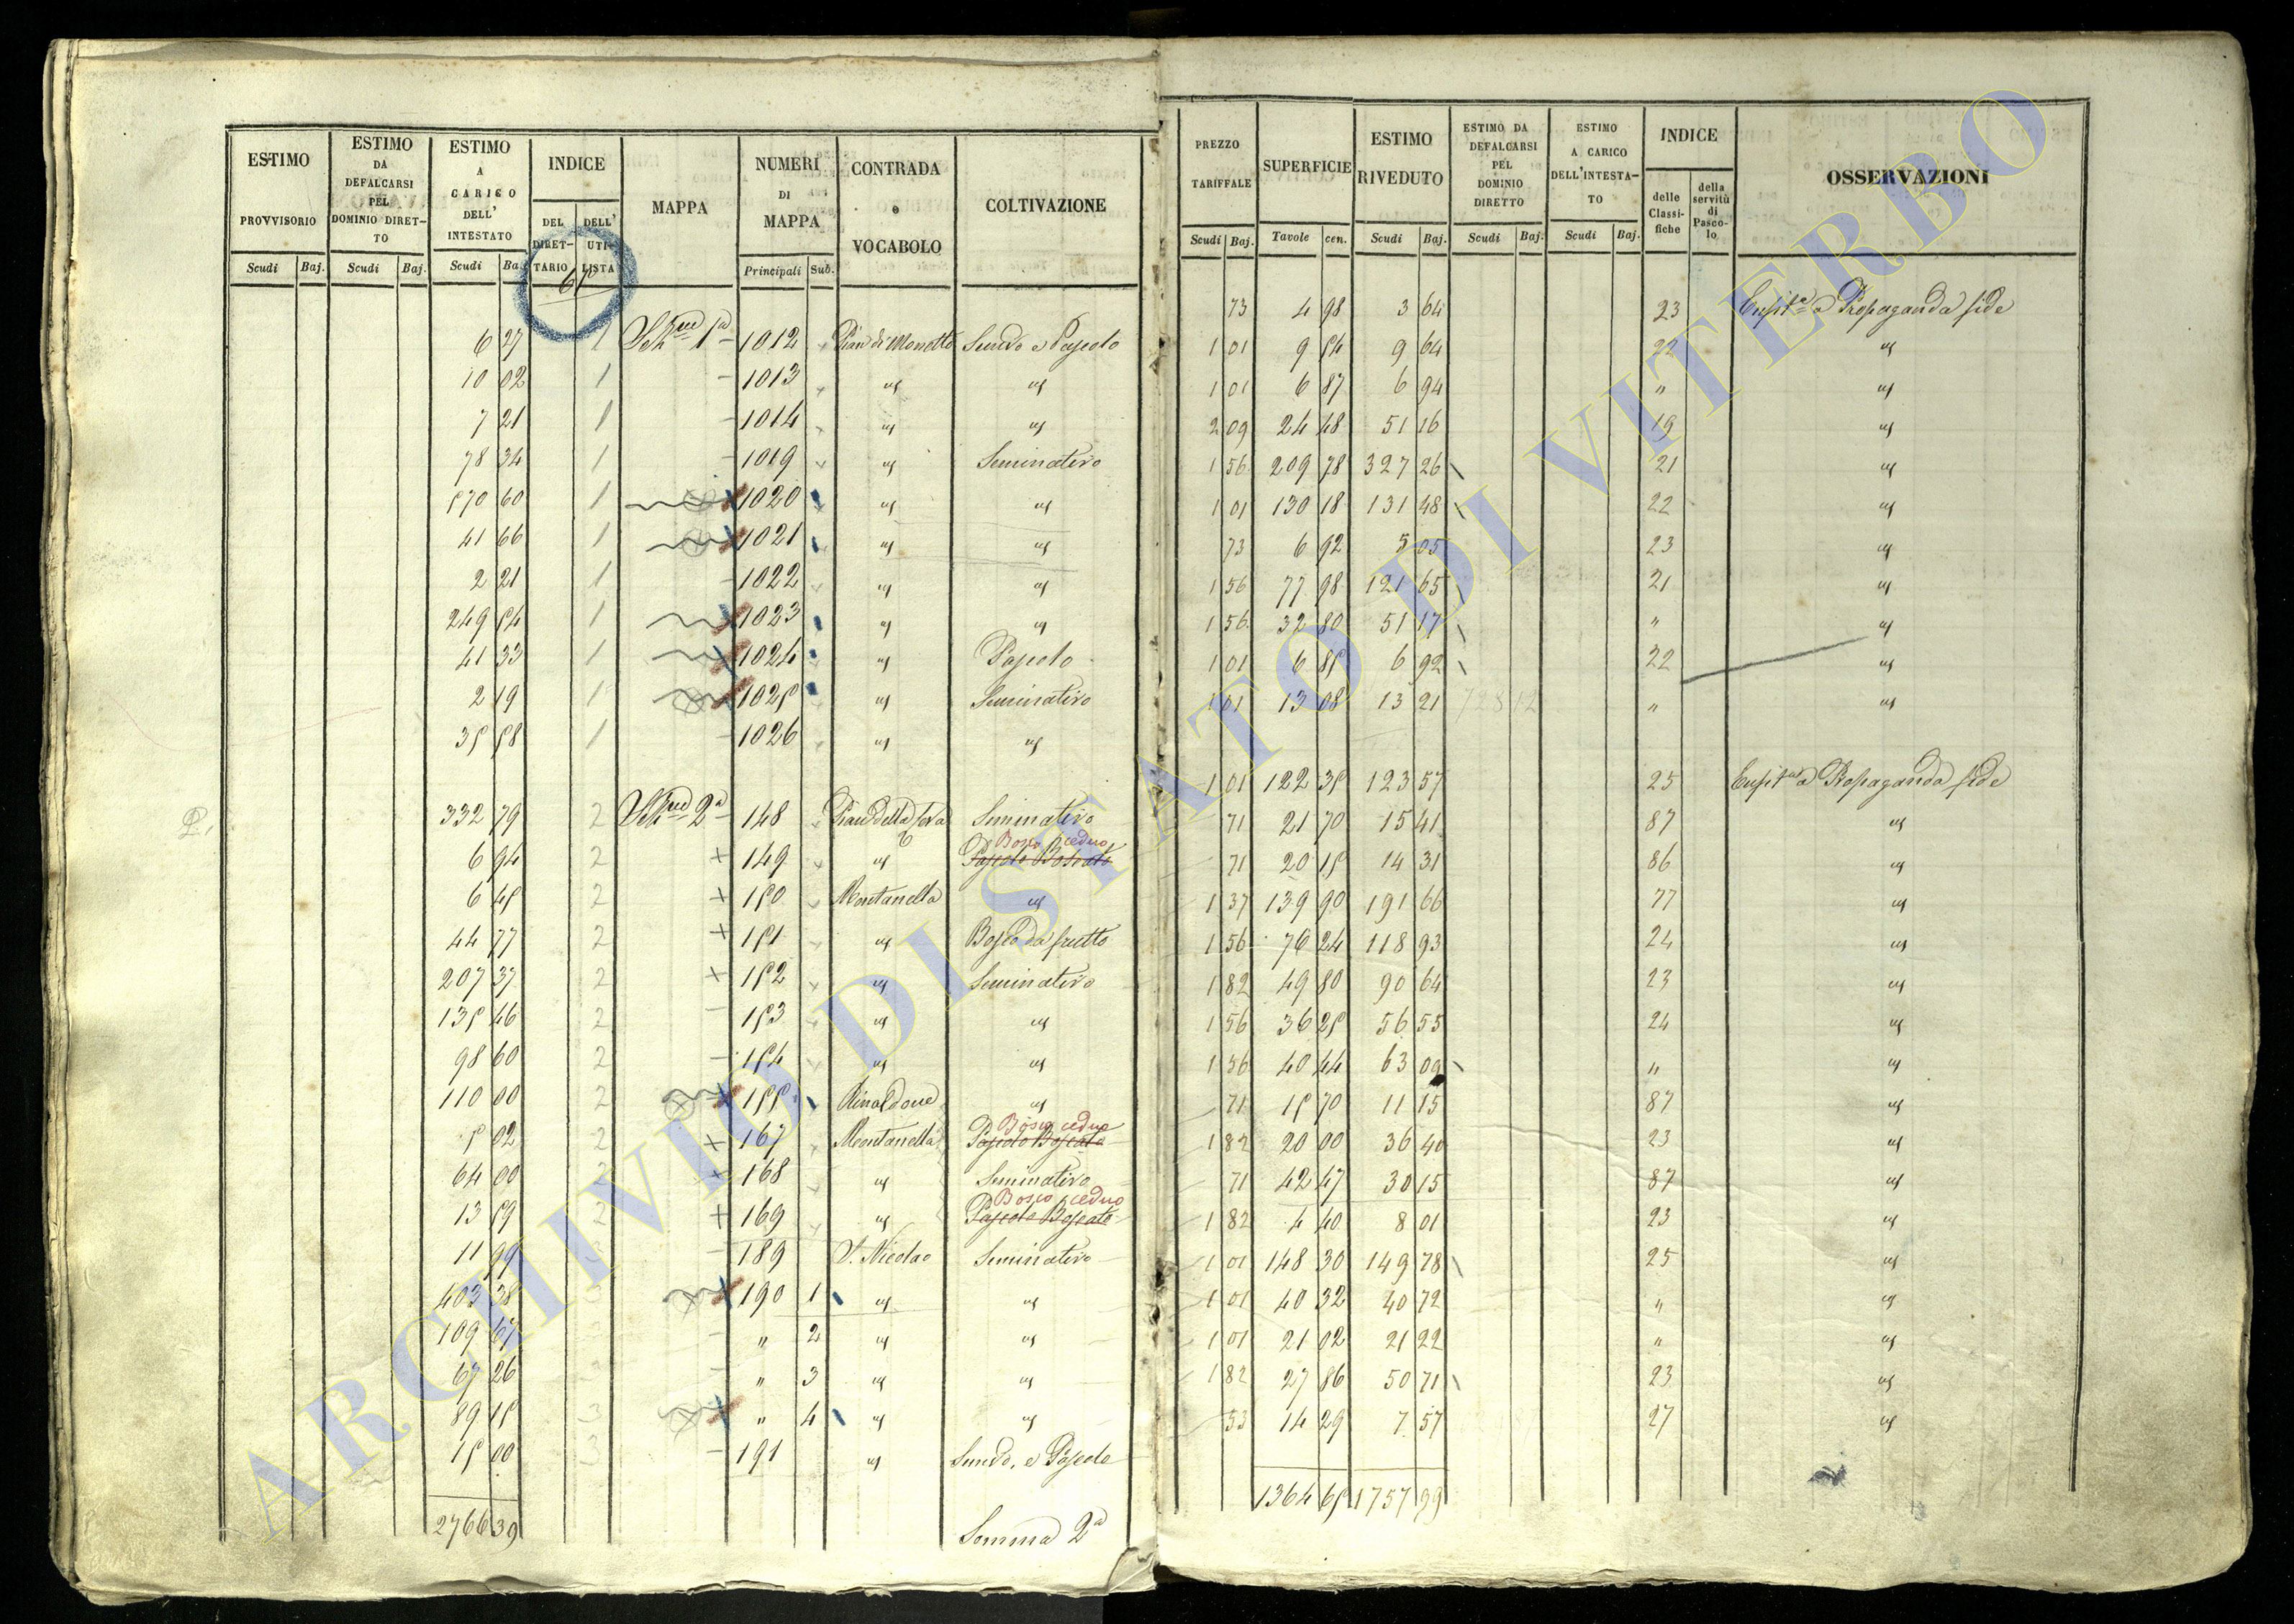 ESTIMO PROVVISORIO Scudi Baj.
ESTIMO DA DEFALCARSI PEL DOMINIO DIRET-TO Scudi Baj.
ESTIMO A CARICO DELL' INTESTATO Scudi Ba
INDICE DEL DIRET-TARIO DELL' UTI-LISTA
MAPPA
NUMERI DI MAPPA Principali Sub.
CONTRADA e VOCABOLO
COLTIVAZIONE
PREZZO TARIFFALE Scudi Baj.
SUPERFICIE Tavole cen.
ESTIMO RIVEDUTO Scudi Baj.
ESTIMO DA DEFALCARSI PEL DOMINIO DIRETTO Scudi Baj.
ESTIMO A CARICO DELL'INTESTA-TO Scudi Baj.
INDICE delle Classi-fiche della servitù di Pasco-lo
OSSERVAZIONI
6 27 1 1012 73 4 98 3 64 23 Propaganda fide
10 02 1 1013 " " 1 01 9 54 9 64 22 "
7 21 1 1014 " " 1 01 6 87 6 94 " "
78 34 1 1019 " Seminativo 2 09 24 48 51 16 19 "
570 60 1 1020 " " 1 56 209 78 327 26 21 "
41 66 1 1021 " " 1 01 130 18 131 48 22 "
2 21 1 1022 " " 73 6 92 5 05 23 "
249 54 1 1023 " " 1 56 77 98 121 65 21 "
41 33 1 1024 " Pascolo 1 56 32 80 51 17 " "
2 19 1 1025 " Seminativo 1 01 6 85 6 92 22 "
35 58 1 1026 " " 1 01 13 08 13 21 728 12 " "
332 79 2 2a 148 Seminativo 1 01 122 35 123 57 25 Propaganda fide
6 94 2 149 " Bosco ceduo Pascolo Boscato 71 21 70 15 41 87 "
6 45 2 150 Montanella " 71 20 15 14 31 86 "
44 77 2 151 " Bosco da frutto 1 37 139 90 191 66 77 "
207 37 2 152 " Seminativo 1 56 76 24 118 93 24 "
135 46 2 153 " " 1 82 49 80 90 64 23 "
98 60 2 154 " " 1 56 36 25 56 55 24 "
110 00 2 155 Rinaldone " 1 56 40 44 63 09 " "
5 02 2 167 Montanella Bosco ceduo Pascolo Boscato 71 15 70 11 15 87 "
64 00 2 168 " Seminativo 1 82 20 00 36 40 23 "
13 59 2 169 " Bosco ceduo Pascolo Boscato 71 42 47 30 15 87 "
11 99 3 189 S. Nicolao Seminativo 1 82 4 40 8 01 23 "
403 38 3 190 1 " " 1 01 148 30 149 78 25 "
109 67 3 " 2 " " 1 01 40 32 40 72 " "
67 26 3 " 3 " " 1 01 21 02 21 22 " "
89 15 3 " 4 " " 1 82 27 86 50 71 23 "
15 00 3 191 " e Pascolo 53 14 29 7 57 27 "
2766 39 Somma 2a 1364 65 1757 99
ARCHIVIO DI STATO DI VITERBO